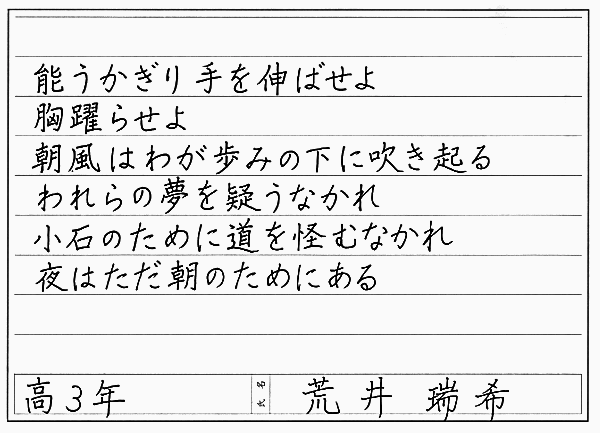 能うかぎり手を伸ばせよ
胸躍らせよ
朝風はわが歩みの下に吹き起る
われらの夢を疑うなかれ
小石のために道を怪むなかれ
夜はただ朝のためにある
高3年 氏名 荒井 瑞希